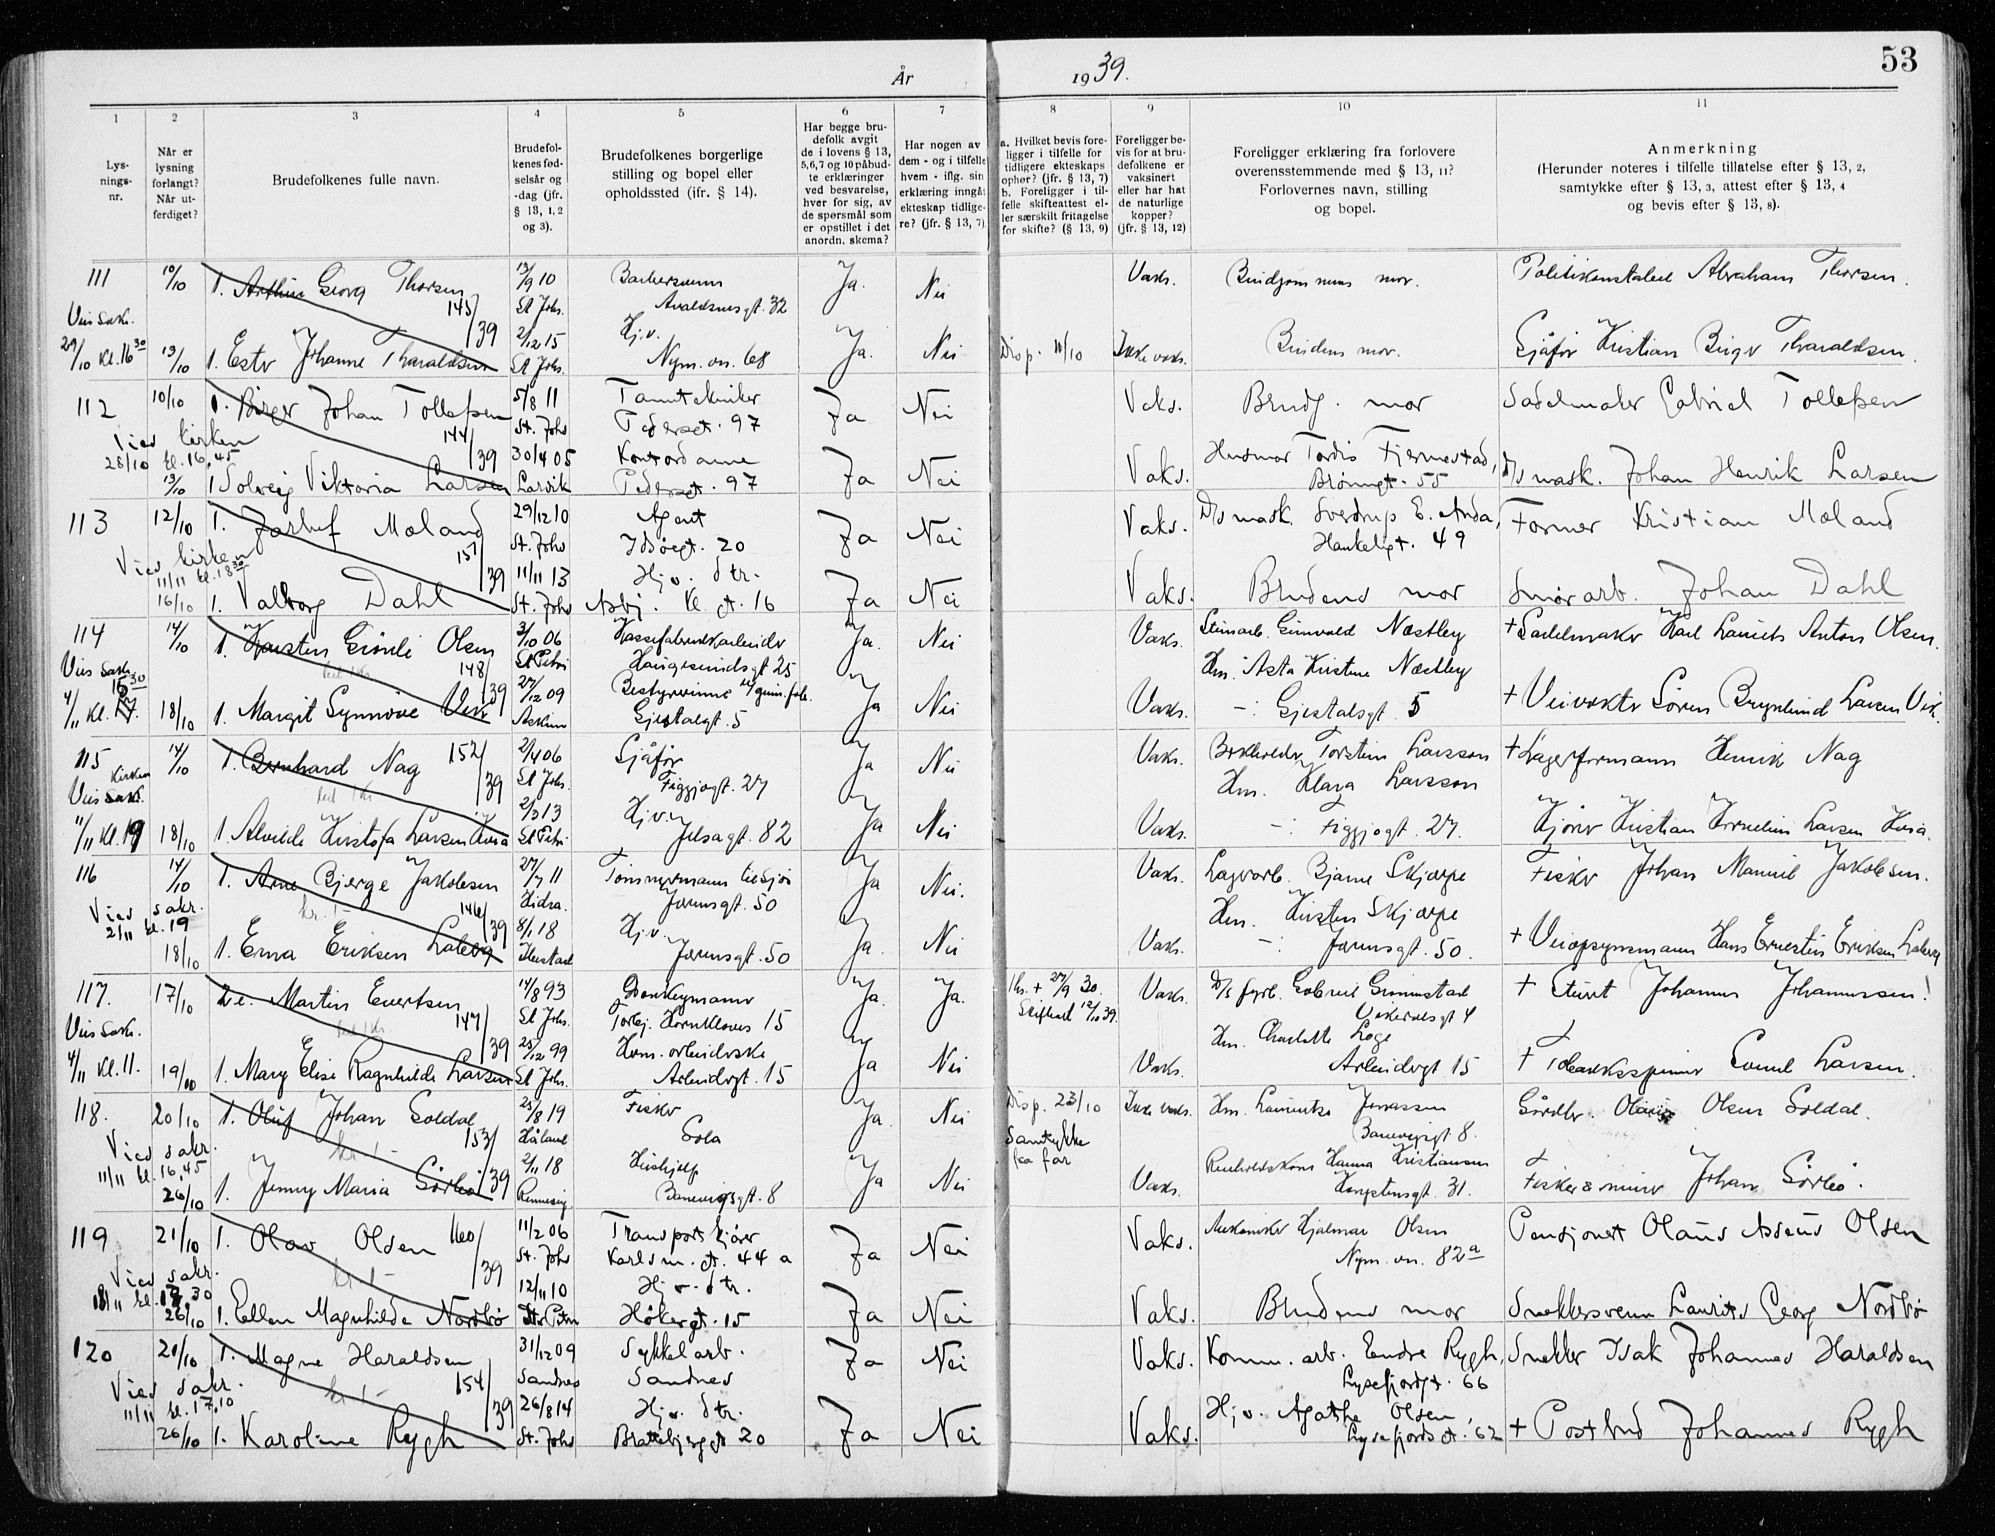 År 1939.
53
1 2 3 4 5 6 7 8 9 10 11
Lysningsnr.
Når er lysning forlangt? Når utferdiget?
Brudefolkenes fulle navn.
Brudefolkenes fødselsår og -dag (jfr. § 13, 1, 2 og 3).
Brudefolkenes borgerlige stilling og bopel eller opholdssted (jfr. § 14).
Har begge brudefolk avgit de i lovens § 13, 5,6,7 og 10 påbudte erklæringer ved besvarelse, hver for sig, av de spørsmål som er opstillet i det anordn. skema?
Har nogen av dem - og i tilfelle hvem - iflg. sin erklæring inngåt ekteskap tidligere? (jfr. § 13, 7)
a. Hvilket bevis foreligger i tilfelle for tidligere ekteskaps ophør? (jfr. § 13, 7) b. Foreligger i tilfelle skifteattest eller særskilt fritagelse for skifte? (§ 13, 9)
Foreligger bevis for at brudefolkene er vaksinert eller har hat de naturlige kopper? (jfr. § 13, 12)
Foreligger erklæring fra forlovere overensstemmende med § 13, 11? Forlovernes navn, stilling og bopel.
Anmerkning (Herunder noteres i tilfelle tillatelse efter § 13, 2, samtykke efter § 13, 3, attest efter § 13, 4 og bevis efter § 13, 8).
111 10/10 1. Arthur Georg Thorsen 13/9 10 Barbersvenn Ja. Nei Vaks. Brudgommens mor. Politikonstabel Abraham Thorsen.
Vies Sakr. 145/39 St Johs. Avaldsnesgt. 32
29/10 Kl. 16 30 13/10 1. Ester Johanne Tharaldsen 2/12 15 Hj.v. Ja. Nei Disp. 11/10 Ikke vaks. Brudens mor. Sjåfør Kristian Birger Tharaldsen.
St Johs. Nym. vn. 68
112 10/10 1. Birger Johan Tollefsen 5/8 11 Tanntekniker Ja Nei Vaks. Brudg. mor Sadelmaker Gabriel Tollefsen
Vies kirken 144/39 St. Johs Pedersgt. 97
28/10 kl. 16,45 30/4 05 Kontordame Husmor Tordis Fjermestad,
13/10 1 Solveig Viktoria Larsen Larvik Pedersgt. 97 Ja Nei Vaks. Brønngt. 55 D/s mask. Johan Henrik Larsen
113 12/10 1. Mæland 29/12 10 Agent Ja Nei Vaks. D/s mask. Sverdrup E. Anda, Former Kristian Mæland
Vies kirken 151/39 St. Johs Idsøegt. 20 Haukeligt. 49
11/11 kl. 18 30 11/11 13 Hj.v. dtr.
16/10 1. Valborg Dahl St. Johs Asbj. Kl. gt. 16 Ja Nei Vaks. Brudens mor Smørarb. Johan Dahl
114 14/10 1. Karsten Olsen 3/10 06 Kassefabrikkarbeider Ja. Nei Vaks. Stenarb. Gunvald Næstby + Sadelmaker Karl Laurits Anton Olsen.
Vies Sakr. 148/39 St Petri Haugesundsgt 25 Hm. Asta Kristine Næstby
4/11 Kl. 18/10 1. Margit Synnøve Vik 27/12 09 Bestyrerinne Ja Nei Vaks. -:- Gjestalsgt. 5 + Veivokter Søren Brynlund Larsen Vik.
Askim Gjestalsgt. 5
115 14/10 1. Bernhard Nag 152/39 2/4 06 Sjåfør Ja Nei Vaks. Torstein Larsson + Lagerformann Henrik Nag
Kirken Vies Sakr. St Johs. Figgjogt. 27 Hm. Klara Larsson
11/11 Kl. 19 18/10 1. Alvilde Kristofa Larsen Kvia 2/3 13 Hj.v. Ja Nei Vaks. -:- Figgjogt. 27. Kjører Kristian Kornelius Larsen Kvia.
St Petri Jelsagt. 82
116 14/10 1. Arne Bjerge Jakobsen 27/7 11 Tømmermann tilsjøs Ja Nei. Vaks. Lagerarb. Bjarne Skjærpe Fisker Johan Manuel Jakobsen.
Vies sakr. kr. 1- 146/39 Hidra. Jærensgt. 50 Hm. Kirsten Skjærpe
2/11 kl. 19 18/10 1. Erna Eriksen Laberg 8/1 18 Hj.v. Jærensgt. 50 Ja. Nei Vaks. -:- Jærensgt. 50. + Veiopsynsmann Hans Ernestin Eriksen Laberg
117. 17/10 2e. Martin Evertsen 14/8 93 Donkeymann Ja. Ja. Hu. + 27/9 30. Vaks. D/s fyrb. Gabriel Grimstad + Johannes Johannessen!
Vies Sakr. 147/39 St Johs. Torbj. Hornkloves 15 Skifteatt. 12/10 39. 4
4/11 Kl. 11. 19/10 1. Mary Elise Ragnhilde Larsen 25/12 99 Herm. arbeiderske Ja Nei Vaks. Hm. Charlotte Loge + Tobakksspinner Larsen.
St Johs. Arbeidergt. 15 Arbeidergt 15
118. 20/10 1. Oluf Johan Soldal 25/8 19 Fisker Ja. Nei Disp. 23/10 Ikke vaks. Hm. Jonassen Gårdbr. Olaus Olsen Soldal.
Vies sakr. kr. 1- 153/39 Håland Sola Samtykke fra far Banevigsgt 8.
11/11 kl. 16,45 26/10 1. Jenny Maria Sørbø 2/11 18 Hushjelp Ja Nei Vaks. Hanna Kristiansen Fisker & murer Johan Sørbø.
Rennesøy Banevigsgt. 8 Kongstensgt. 31.
119 21/10 1. Olav Olsen 160/39 11/2 06 Transportkjører Ja Nei Vaks. Mekaniker Hjalmar Olsen Pensjonert Olaus Asseus Olsen
Vies sakr. kr. 1- St. Johs Karlsm. gt. 44 a Nym. vn. 82 a
18/11 kl. 17,30 12/11 10 Hj.v. dtr.
26/10 1. Ellen Magnhilde Nordbø St. Petri Høkergt. 15 Ja Nei Vaks. Brudens mor Snekkersvenn Laurits Georg Nordbø
120 21/10 1. Magne Haraldsen 31/12 09 Sykkelarb. Ja Nei Vaks. Komm. arb. Endre Rygh, Snekker Isak Johannes Haraldsen
Vies sakr. kr. 1- 154/39 Sandnes Sandnes Lysefjordgt. 66
11/11 kl. 17,10 26/8 14 Hj.v. dtr. Hj.v. Agathe Olsen,
26/10 1. Karoline Rygh St. Johs Brattebjergt 20 Ja Nei Vaks. Lysefjordgt. 62 + Postbud Johannes Rygh